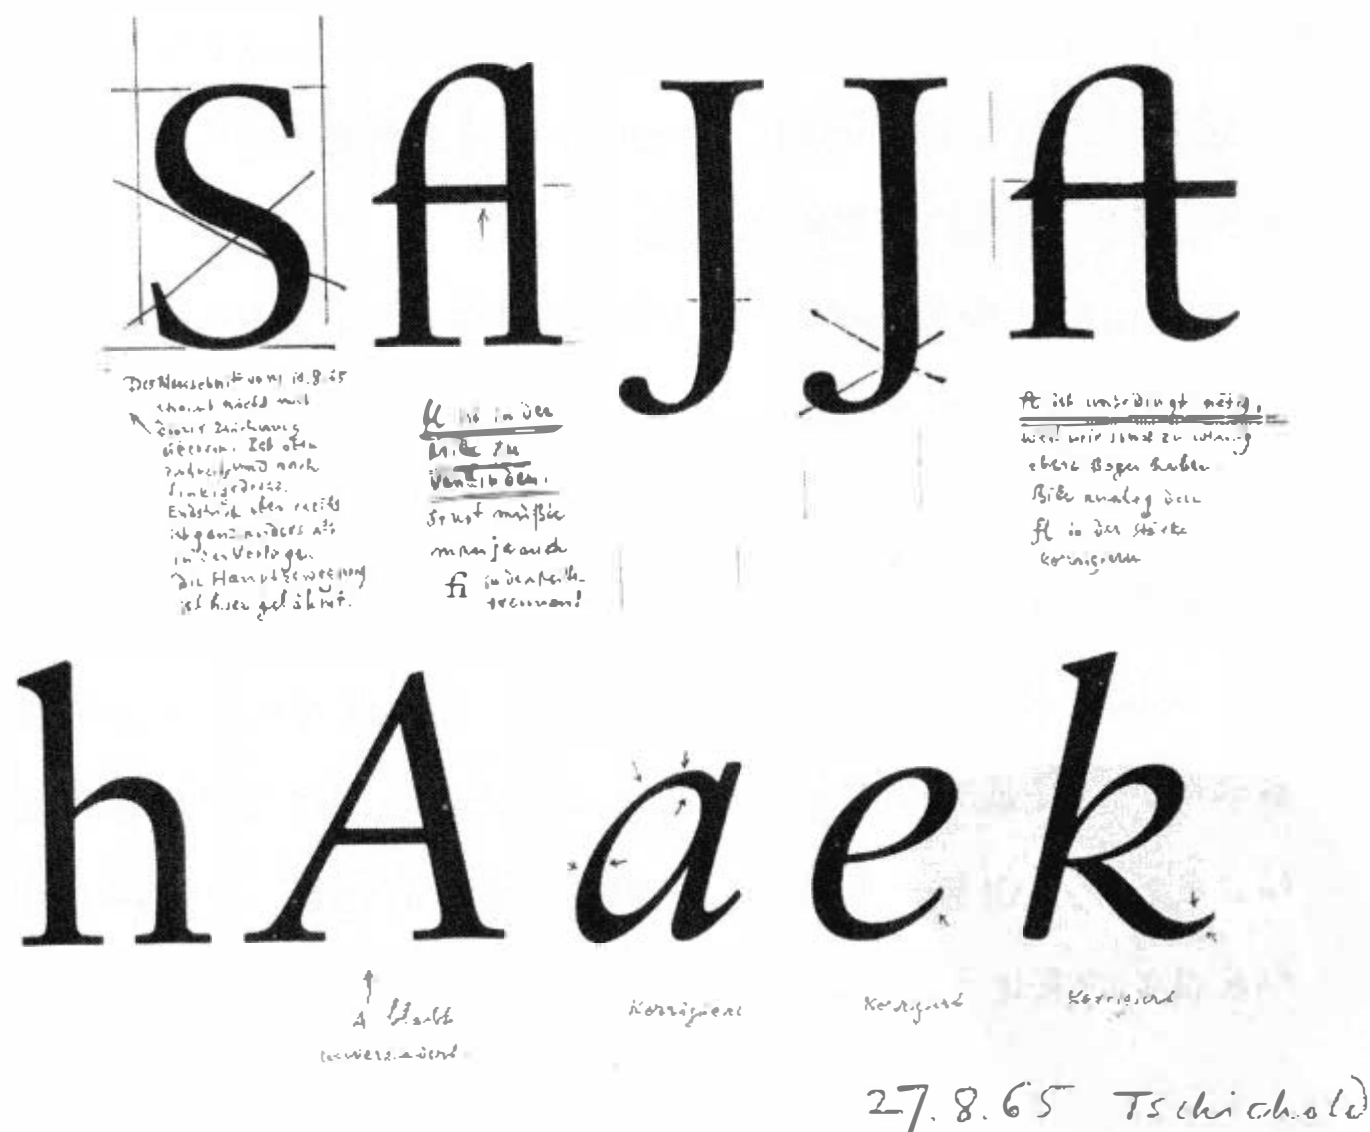 S fl J J ft
Der Neuschnitt vom 10.8.65
nicht mit
Zeichnung
oben
und nach
links
Endstrich oben rechts
ist ganz anders als
in der Vorlage.
Die Hauptbewegung
ist hier gelähmt.
fl ist in der
Mitte zu
verbinden.
Sonst müßte
man ja auch
fi in der Mitte
trennen!
ft ist unbedingt nötig,
weil wir sonst zu wenig
obere Bogen haben
Bitte analog dem
fl in der Stärke
korrigieren
h A a e k
A bleibt
unverändert
korrigiert
korrigiert
korrigiert
27.8.65 Tschichold